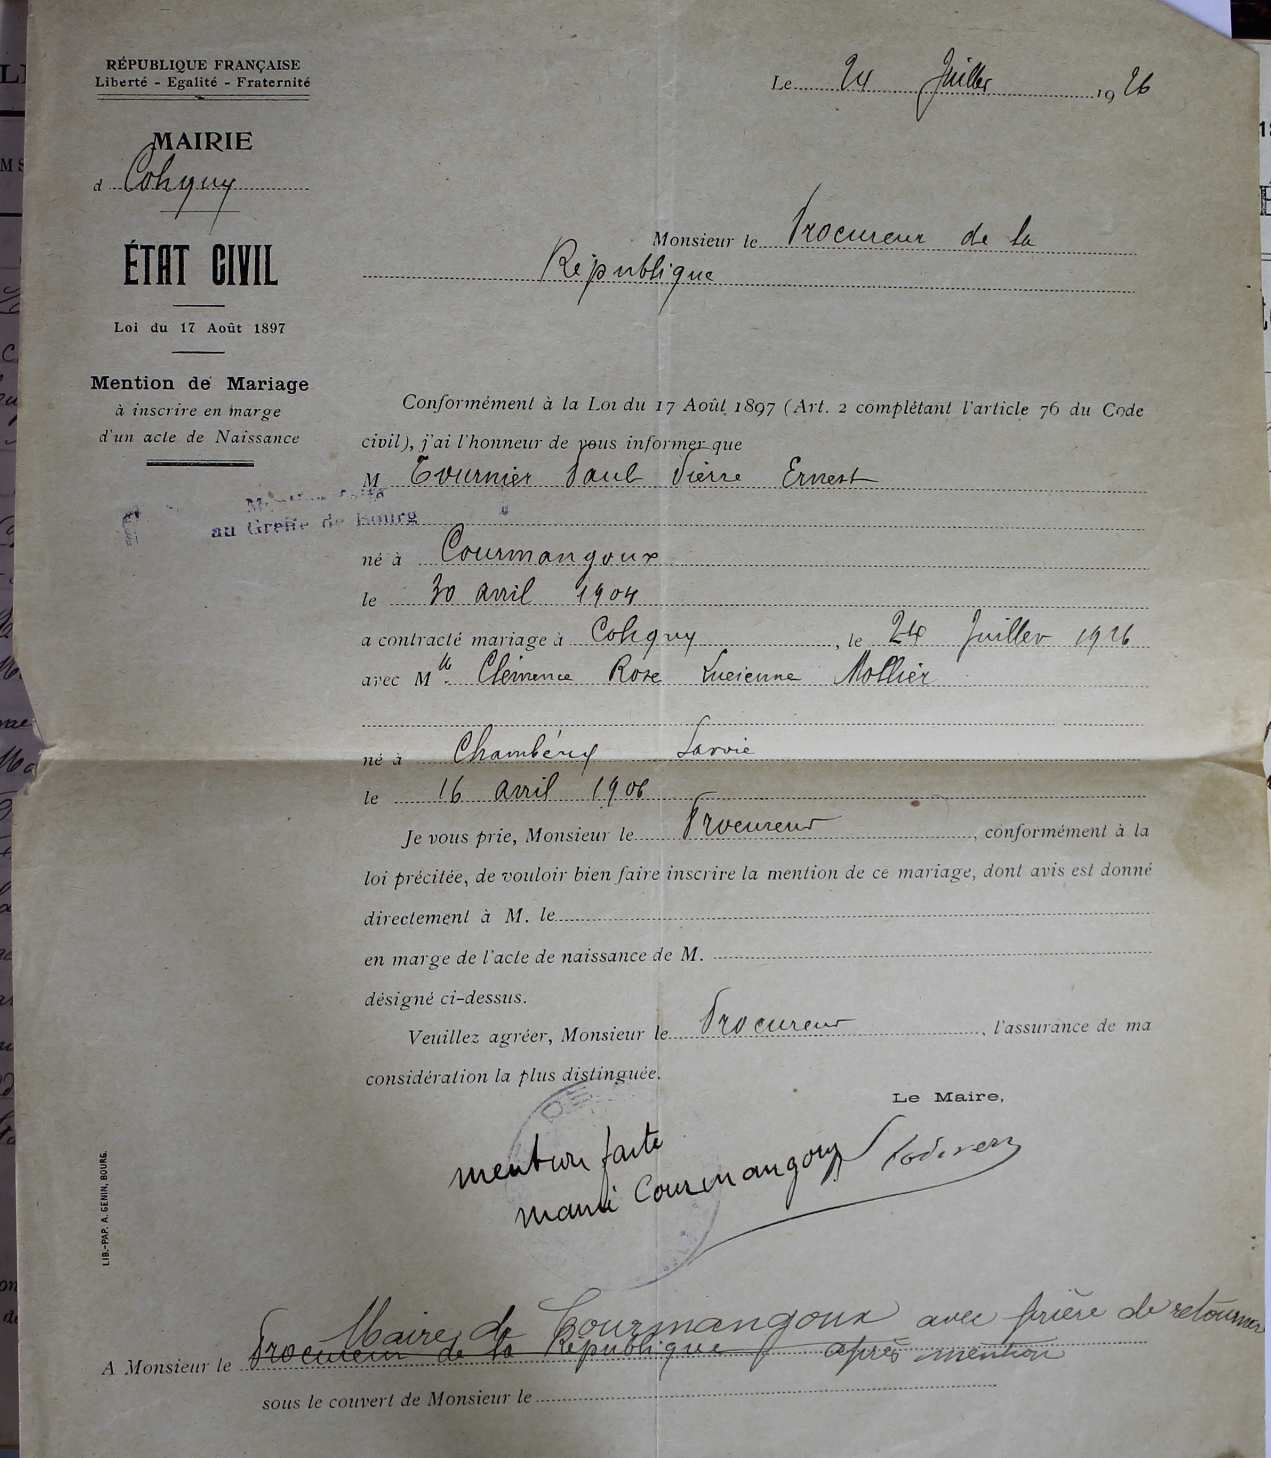 RÉPUBLIQUE FRANÇAISE
Liberté - Egalité - Fraternité
MAIRIE
d Coligny
ÉTAT CIVIL
Loi du 17 Août 1897
Mention de Mariage
à inscrire en marge
d'un acte de Naissance
au Greffe de Bourg
Le 24 Juillet 1926
Monsieur le Procureur de la
République
Conformément à la Loi du 17 Août 1897 (Art. 2 complétant l'article 76 du Code
civil), j'ai l'honneur de vous informer que
M Tournier Paul Pierre Ernest
né à Courmangoux
le 30 avril 1904
a contracté mariage à Coligny, le 24 Juillet 1926
avec Mlle Clémence Rose Lucienne Mollier
né à Chambéry Savoie
le 16 avril 1906
Je vous prie, Monsieur le Procureur, conformément à la
loi précitée, de vouloir bien faire inscrire la mention de ce mariage, dont avis est donné
directement à M. le
en marge de l'acte de naissance de M.
désigné ci-dessus.
Veuillez agréer, Monsieur le Procureur, l'assurance de ma
considération la plus distinguée.
Le Maire,
mention faite
Courmangoux
LIB.-PAP. A. GENIN, BOURG.
Maire de Courmangoux avec prière de retourner
A Monsieur le Procureur de la République après mention
sous le couvert de Monsieur le